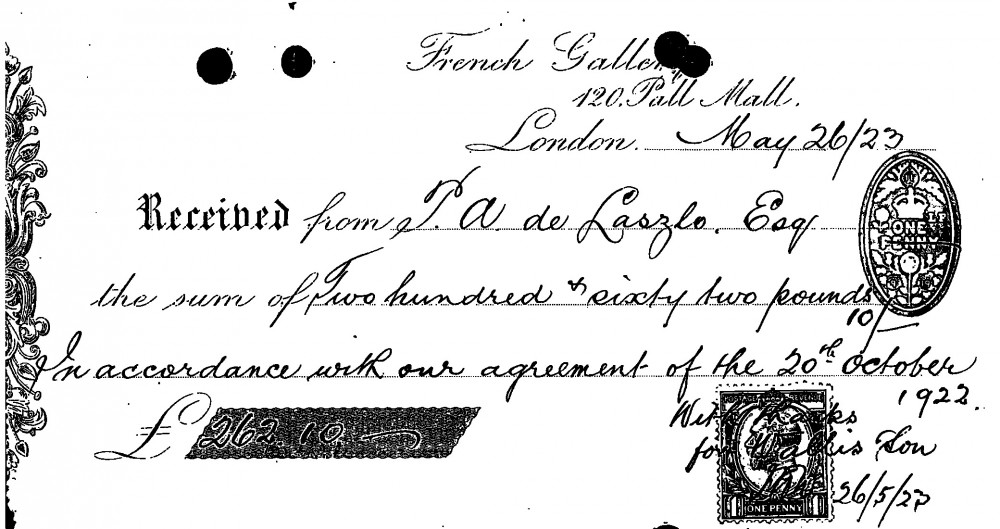 French Gallery
120. Pall Mall.
London. May 26/23
Received from P. A. de Laszlo. Esq
ONE PENNY
the sum of Two hundred & sixty two pounds
10/-
In accordance with our agreement of the 20th October
1922.
£ 262. 10. —
With thanks
for Wallis Son
26/5/23
1 ONE PENNY 1